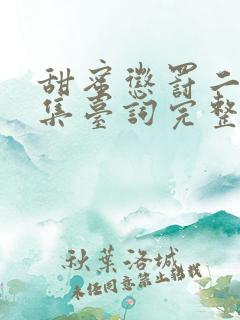 甜蜜懲罰二
集臺詞完整
秋葉洛城
未经同意禁止转载